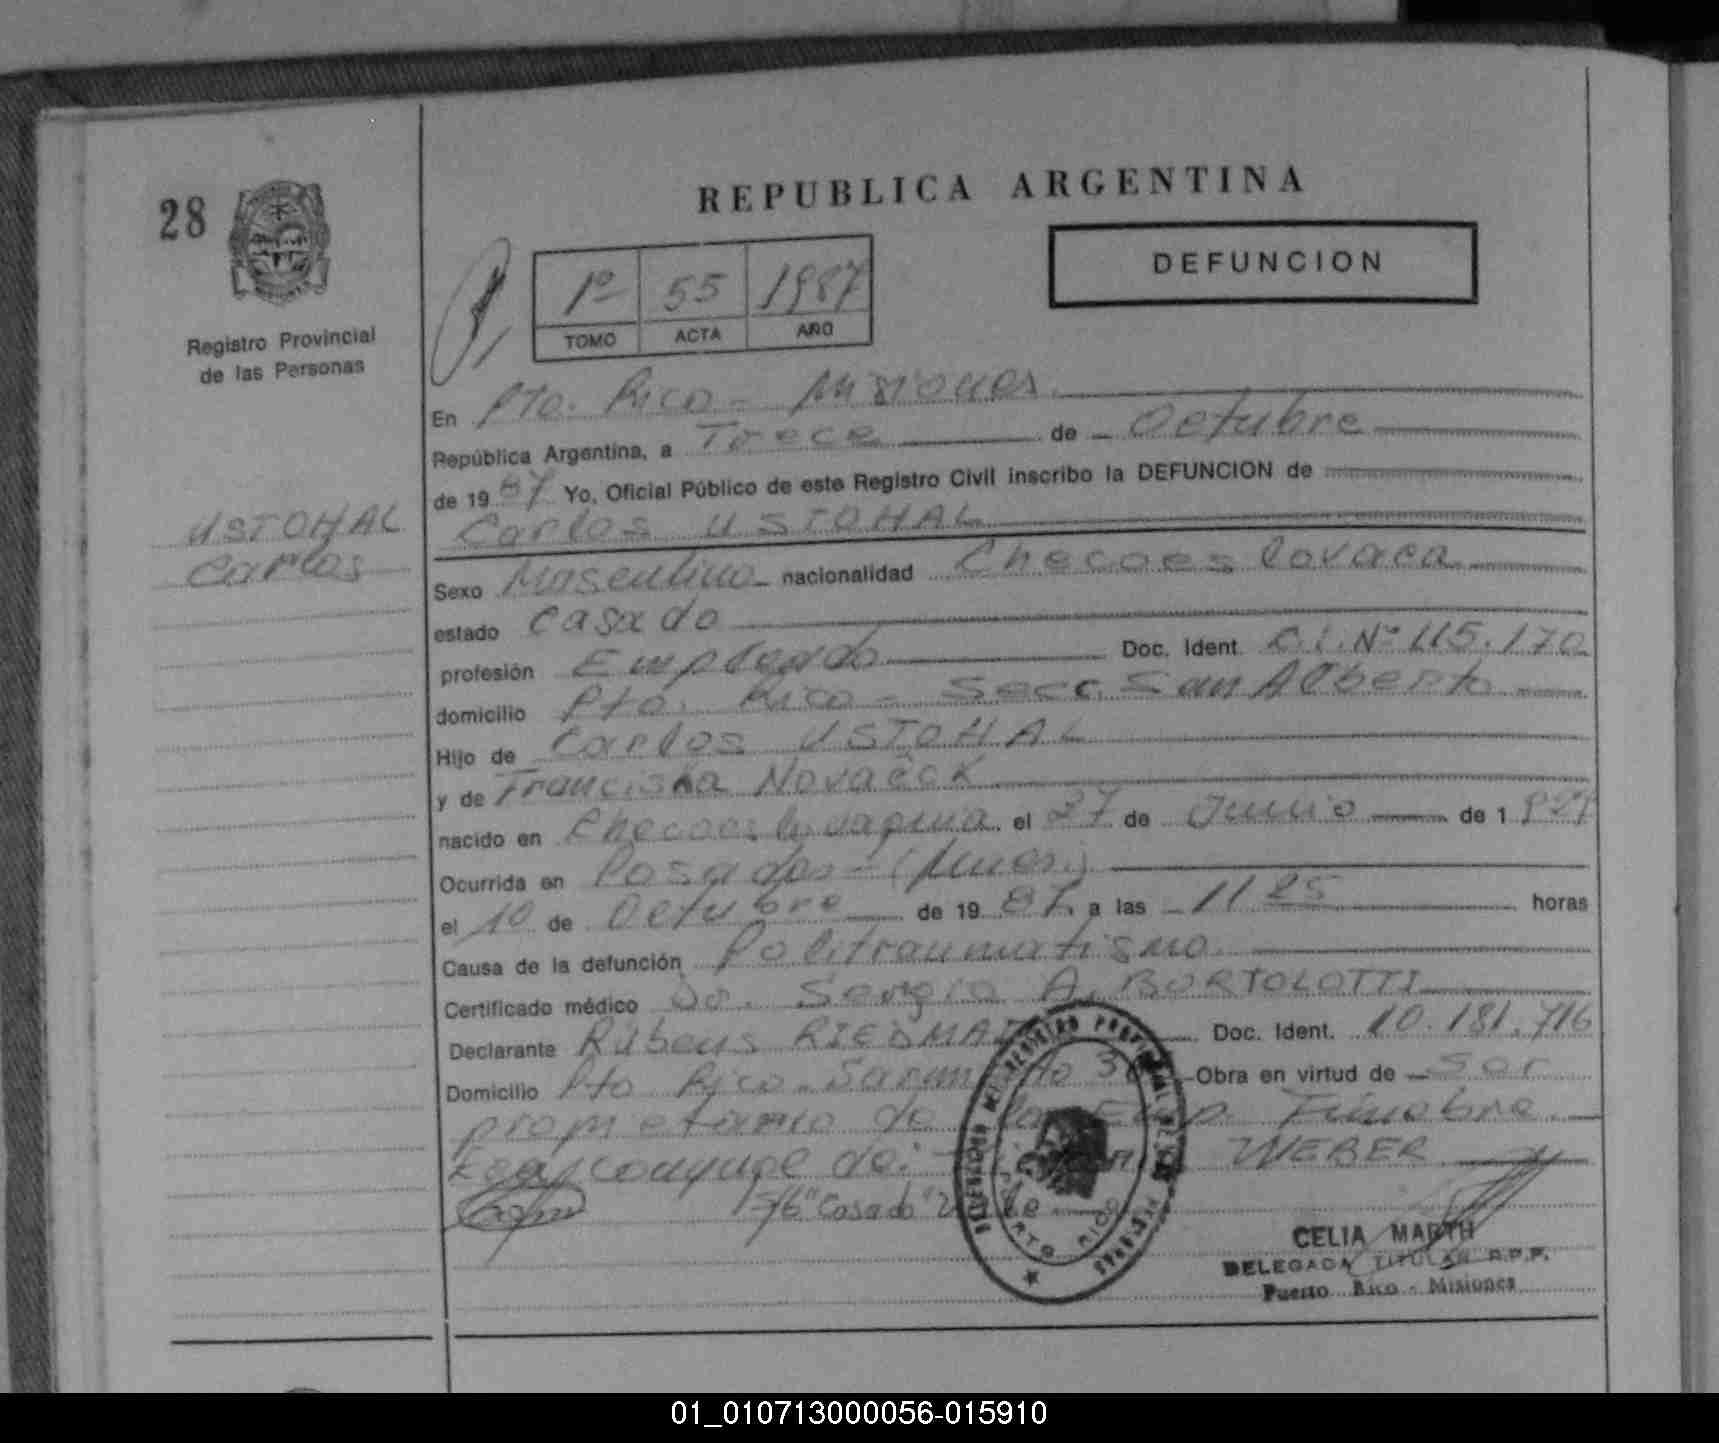 28
REPUBLICA ARGENTINA
DEFUNCION
1º 55 1987
TOMO ACTA AÑO
Registro Provincial
de las Personas
En Pto. Rico - Misiones
República Argentina, a Trece de Octubre
de 1987 Yo, Oficial Público de este Registro Civil inscribo la DEFUNCION de
USTOHAL
Carlos
Carlos USTOHAL
Sexo Masculino nacionalidad Checoeslovaca
estado Casado
profesión Empleado Doc. Ident. C.I. Nº 115.170
domicilio Pto. Rico - Secc. San Alberto
Hijo de Carlos USTOHAL
y de Franciska Novaček
nacido en Checoeslovaquia el 27 de Junio de 1
Ocurrida en Posadas - (Mnes.)
el 10 de Octubre de 1987 a las 11 25 horas
Causa de la defunción Politraumatismo
Certificado médico Dr. Sergio A. BORTOLOTTI
Declarante Rubens Doc. Ident. 10.181.716
Domicilio Pto Rico Obra en virtud de Ser
propietario de la Emp. Fúnebre
conyuge de: WEBER
"Casado"
PUERTO RICO
CELIA MARTH
DELEGADA TITULAR R.P.P.
Puerto Rico - Misiones
01_010713000056-015910